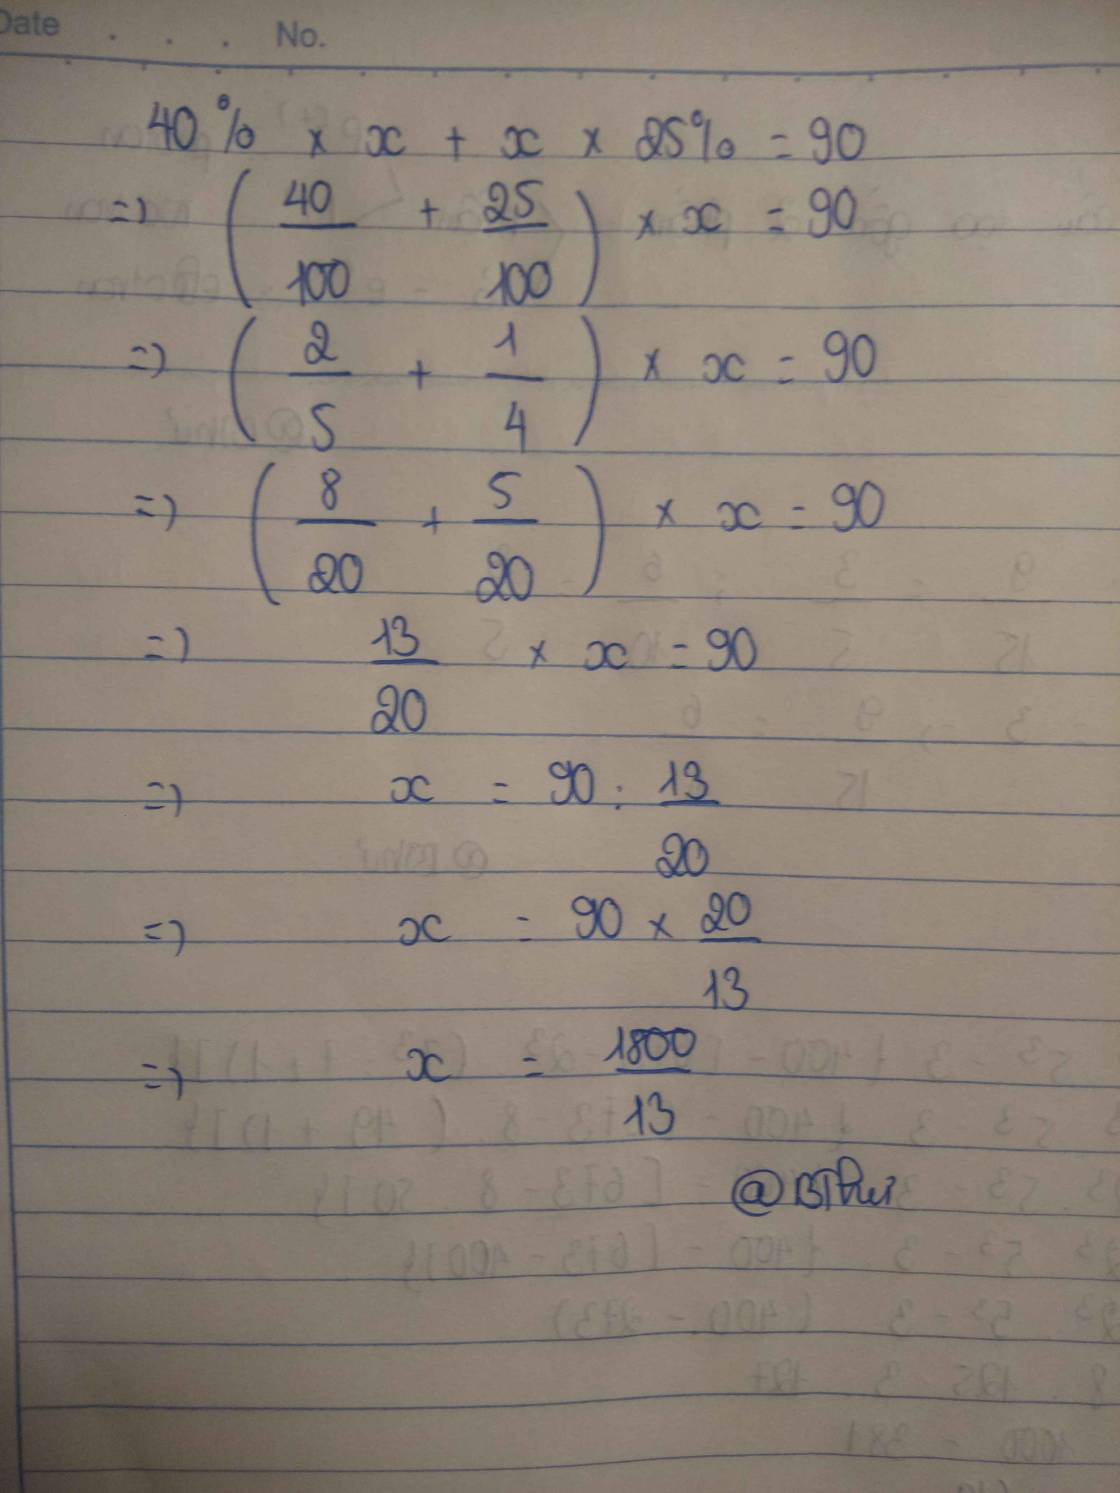 Date . . . No.
40% × x + x × 25% = 90
=> (40/100 + 25/100) × x = 90
=> (2/5 + 1/4) × x = 90
=> (8/20 + 5/20) × x = 90
=> 13/20 × x = 90
=> x = 90 : 13/20
=> x = 90 × 20/13
=> x = 1800/13